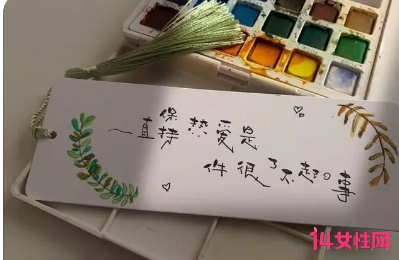 一直保持热爱是
件很了不起的事
14女性网